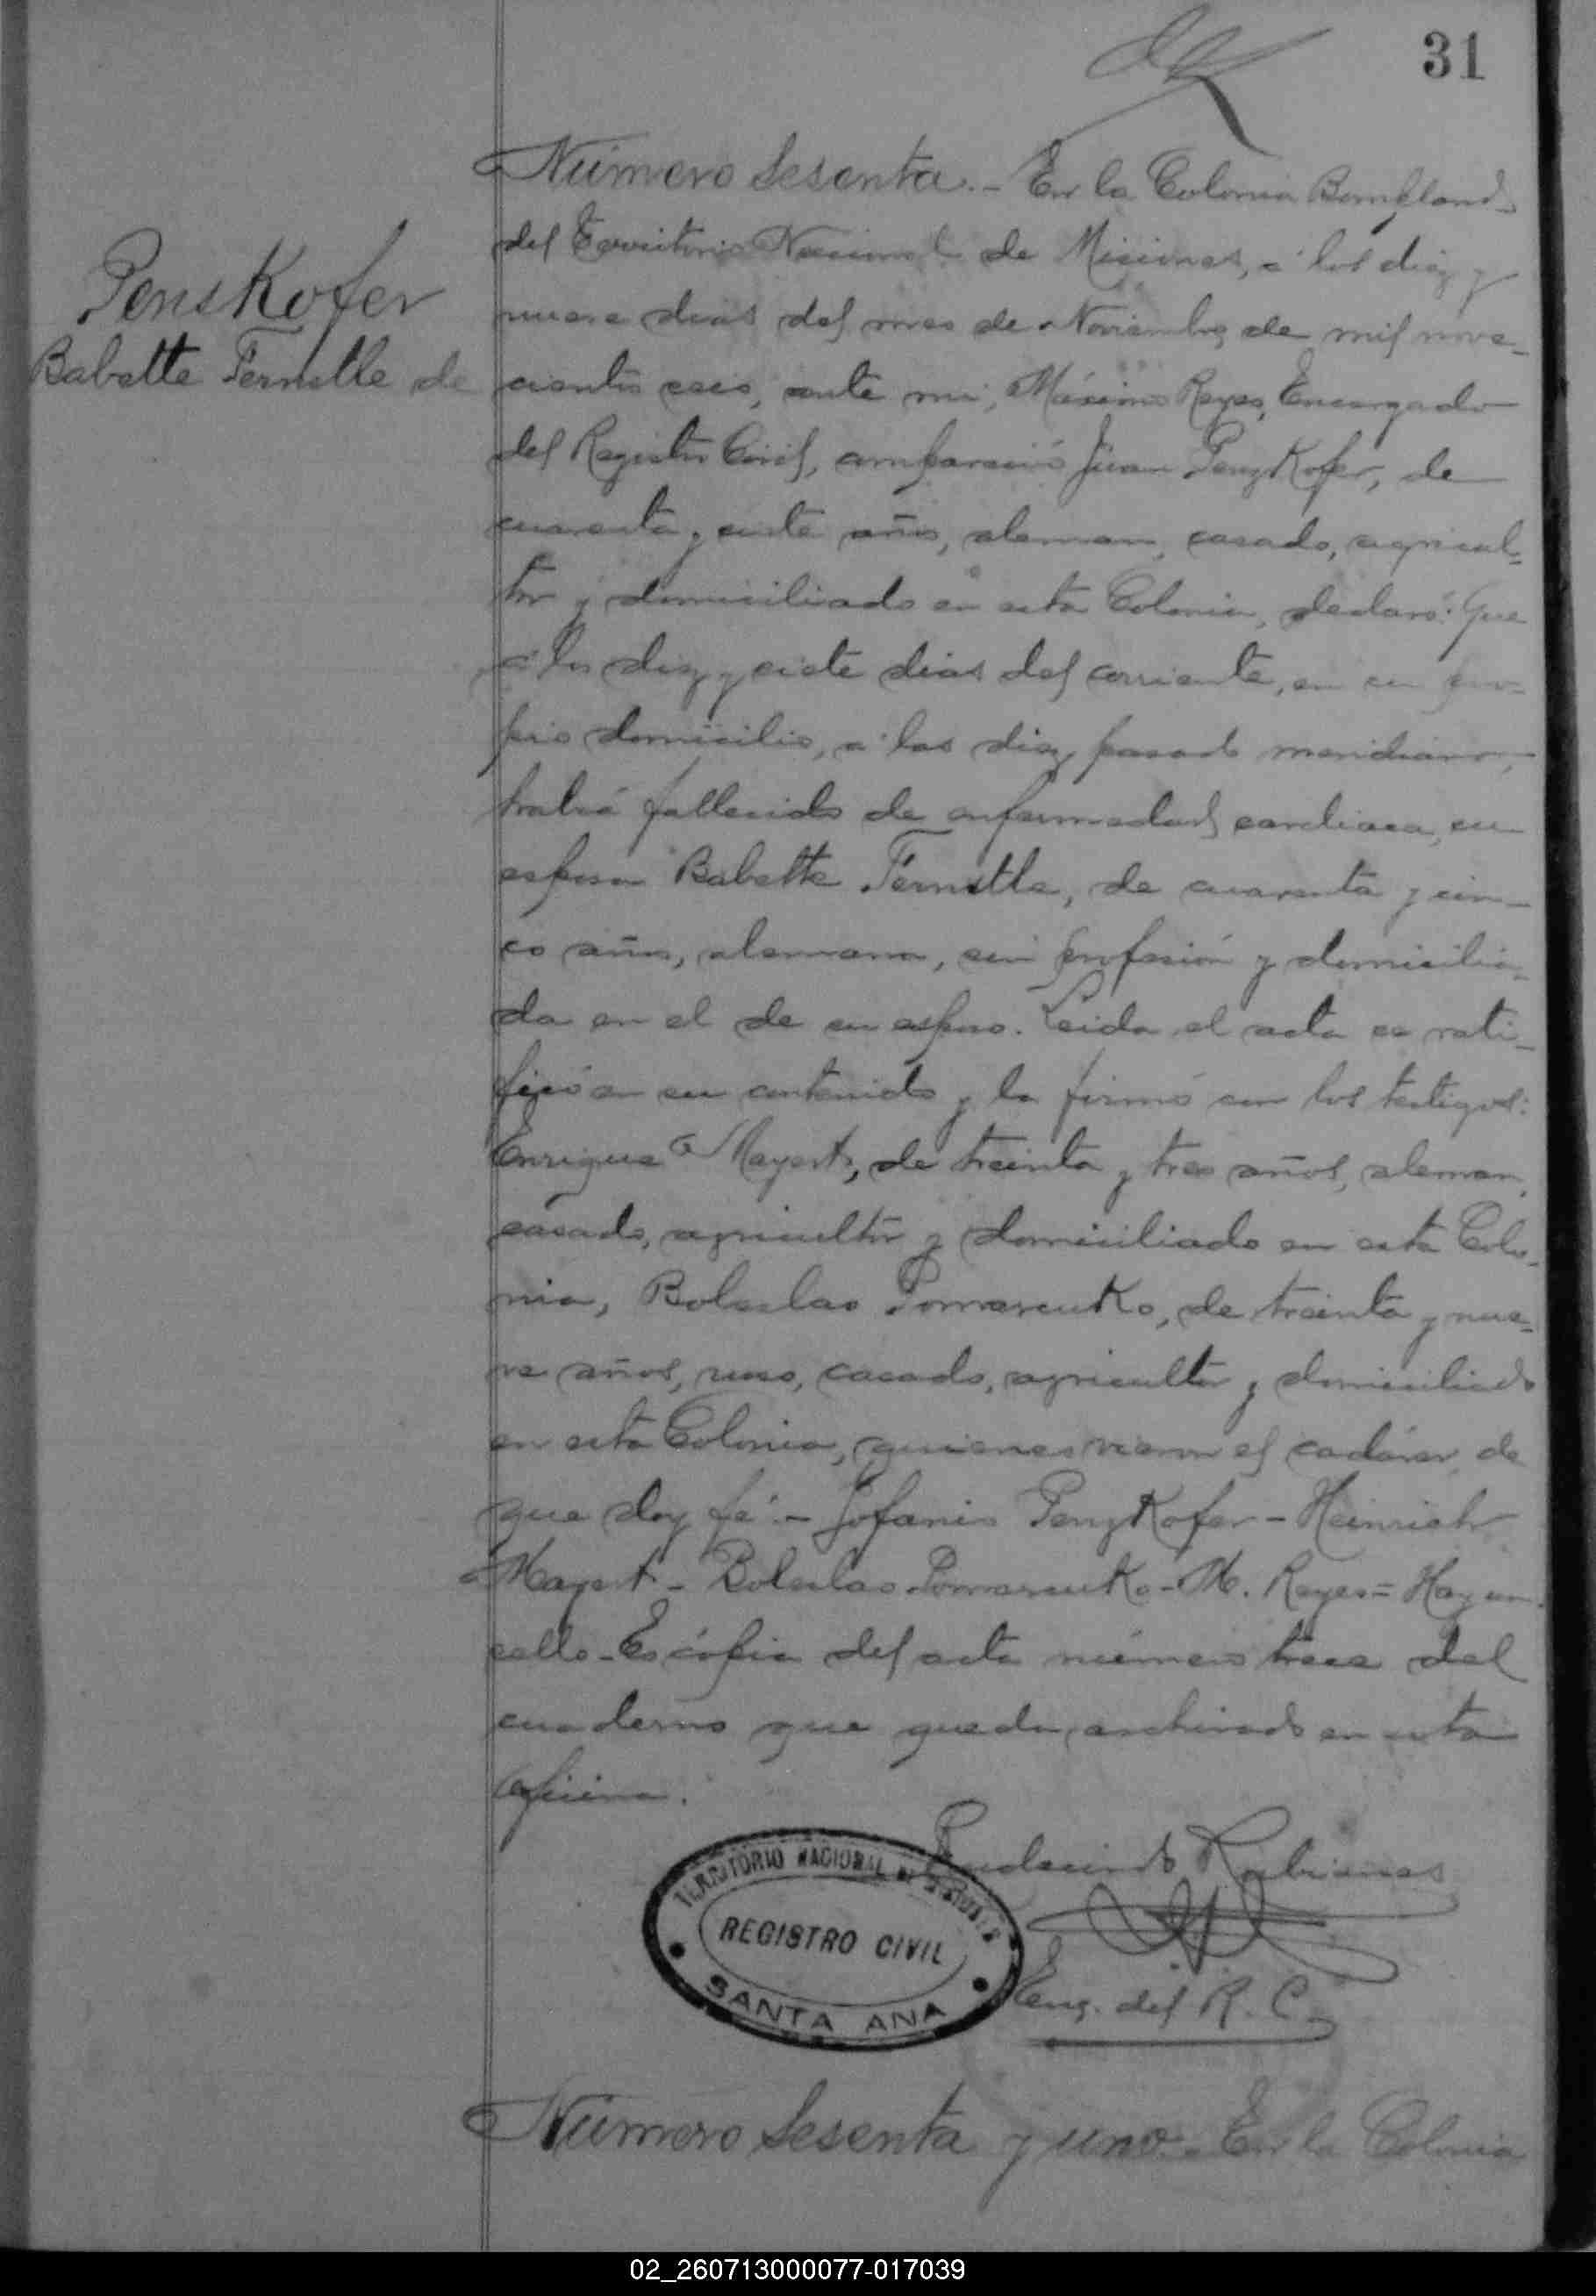 31
Número Sesenta.- En la Colonia Bompland
del Territorio Nacional de Misiones, á los diez y
Penskofer
nueve dias del mes de Noviembre de mil nove-
Babette Fernstle de
cientos seis, ante mi, Máximo Reyes, Encargado
del Registro Civil, compareció Juan PenzKofer, de
cuarenta y siete años, aleman, casado, agricul-
tor y domiciliado en esta Colonia, declaró: Que
á los diez y siete dias del corriente, en su pro-
pio domicilio, á las diez pasado meridiano,
habia fallecido de enfermedad cardiaca, su
esposa Babette Fernstle, de cuarenta y cin-
co años, alemana, sin profesión y domicilia-
da en el de su esposo. Leida el acta se rati-
ficó en su contenido y la firmó con los testigos:
Enrique Mayert, de treinta y tres años, aleman,
casado, agricultor y domiciliado en esta Colo-
nia, Boleslao Pomarenko, de treinta y nue-
ve años, ruso, casado, agricultor y domiciliado
en esta Colonia, quienes vieron el cadáver de
que doy fé.- Jofanis PenzKofer - Heinrich
Mayert - Boleslao - M. Reyes = Hay un
sello - Es cópia del acta número trece del
cuaderno que queda archivado en esta
oficina.
Rudecindo
TERRITORIO NACIONAL DE MISIONES
REGISTRO CIVIL
SANTA ANA
Enc. del R. C.
Número Sesenta y uno - En la Colonia
02_260713000077-017039